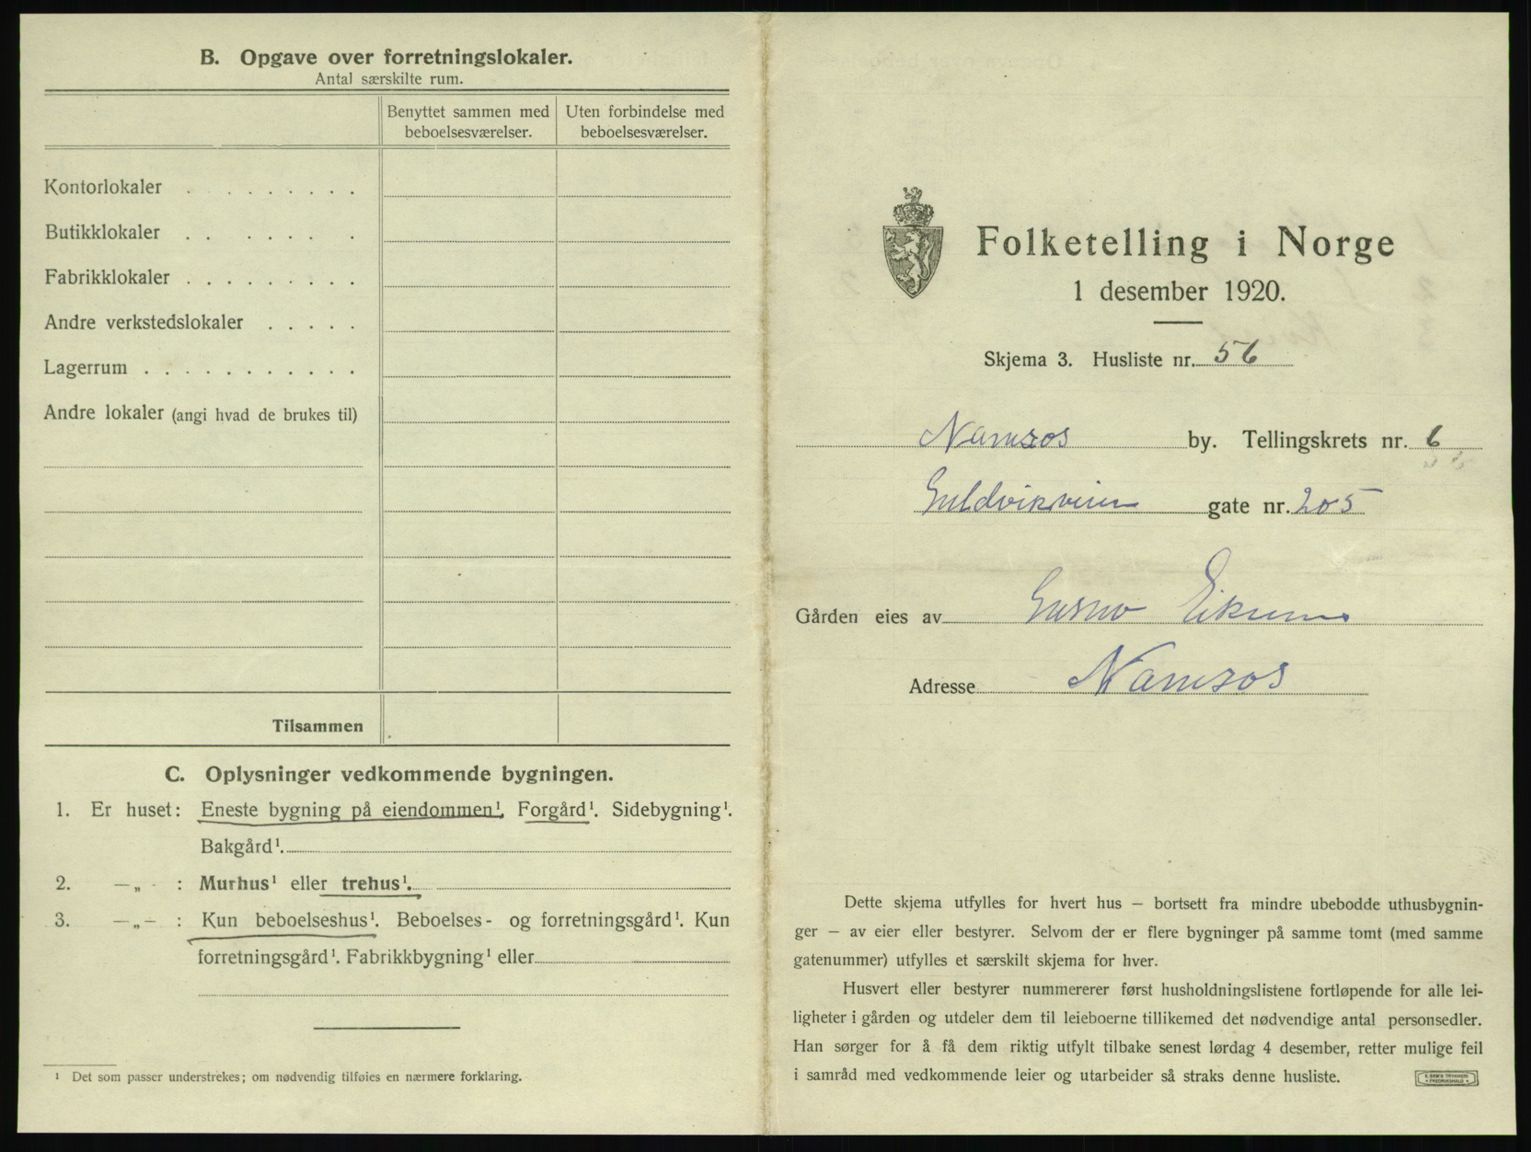 B. Opgave over forretningslokaler.
Antal særskilte rum.
Benyttet sammen med beboelsesværelser.
Uten forbindelse med beboelsesværelser.
Kontorlokaler . . . . . . . . .
Butikklokaler . . . . . . .
Fabrikklokaler . . . . . . . . .
Andre verkstedslokaler . . . . .
Lagerrum . . . . . . . . . . .
Andre lokaler (angi hvad de brukes til)
Tilsammen
C. Oplysninger vedkommende bygningen.
1. Er huset: Eneste bygning på eiendommen¹. Forgård¹. Sidebygning¹.
Bakgård¹.
2. —„— : Murhus¹ eller trehus¹.
3. —„— : Kun beboelseshus¹. Beboelses- og forretningsgård¹. Kun
forretningsgård¹. Fabrikkbygning¹ eller
¹ Det som passer understrekes; om nødvendig tilføies en nærmere forklaring.
Folketelling i Norge
1 desember 1920.
Skjema 3. Husliste nr. 56
Namsos by. Tellingskrets nr. 6
Guldvikveien gate nr. 205
Gården eies av Gustav
Adresse Namsos
Dette skjema utfylles for hvert hus — bortsett fra mindre ubebodde uthusbygnin-
ger — av eier eller bestyrer. Selvom der er flere bygninger på samme tomt (med samme
gatenummer) utfylles et særskilt skjema for hver.
Husvert eller bestyrer nummererer først husholdningslistene fortløpende for alle lei-
ligheter i gården og utdeler dem til leieboerne tillikemed det nødvendige antal personsedler.
Han sørger for å få dem riktig utfylt tilbake senest lørdag 4 desember, retter mulige feil
i samråd med vedkommende leier og utarbeider så straks denne husliste.